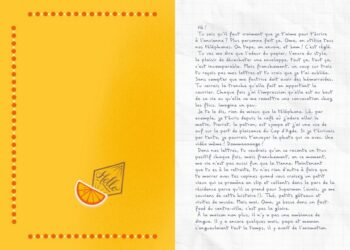 Hello
Hé !
Tu sais qu'il faut vraiment que je t'aime pour t'écrire
à l'ancienne ? Plus personne fait ça, Oma, on utilise tous
nos téléphones. On tape, on envoie, et bam ! C'est réglé.
Tu vas me dire que l'odeur du papier, l'encre du stylo,
le plaisir de décacheter une enveloppe, tout ça, tout ça,
c'est incomparable. Mais franchement, un coup sur trois
tu reçois pas mes lettres et tu crois que je t'ai oubliée.
Sans compter que ma factrice doit avoir des hémorroïdes.
Tu verrais la tronche qu'elle fait en apportant le
courrier. Chaque fois j'ai l'impression qu'elle est au bout
de sa vie ou qu'elle va me remettre une convocation chez
les flics. Imagine un peu.
Je te le dis, rien ne vaut le téléphone. Là, par
exemple, je t'écris depuis le café où j'adore aller le
matin. Planté, le patron, est sympa et j'ai une vue de
ouf sur le port de plaisance du Cap d'Agde. Si je t'écrivais
par texto, je pourrais t'envoyer la photo qui va avec. Une
vidéo même !
Dans nos lettres, tu voudrais qu'on se raconte un truc
positif chaque fois, mais franchement, en ce moment,
ma vie n'est pas aussi fun que la tienne. Maintenant
que tu es à la retraite, tu n'as rien d'autre à faire que
te marrer avec tes copines quand vous croisez un petit
vieux qui se promène en slip et collants dans le parc de la
résidence parce qu'il se prend pour Superman
visites de musée. Mais moi, Oma, je bosse dans un fast-
food de centre-ville, c'est pas la gloire.
À la maison non plus, il n'y a pas une ambiance de
dingue. Il y a encore quelques mois, papa et maman
s'engueulaient tout le temps, il y avait de l'animation.